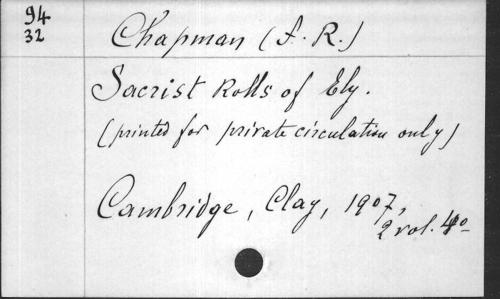 94
32
Chapman (F. R.)
Sacrist Rolls of Ely.
(printed for private circulation only)
Cambridge, Clay, 1907,
2 vol. 4o